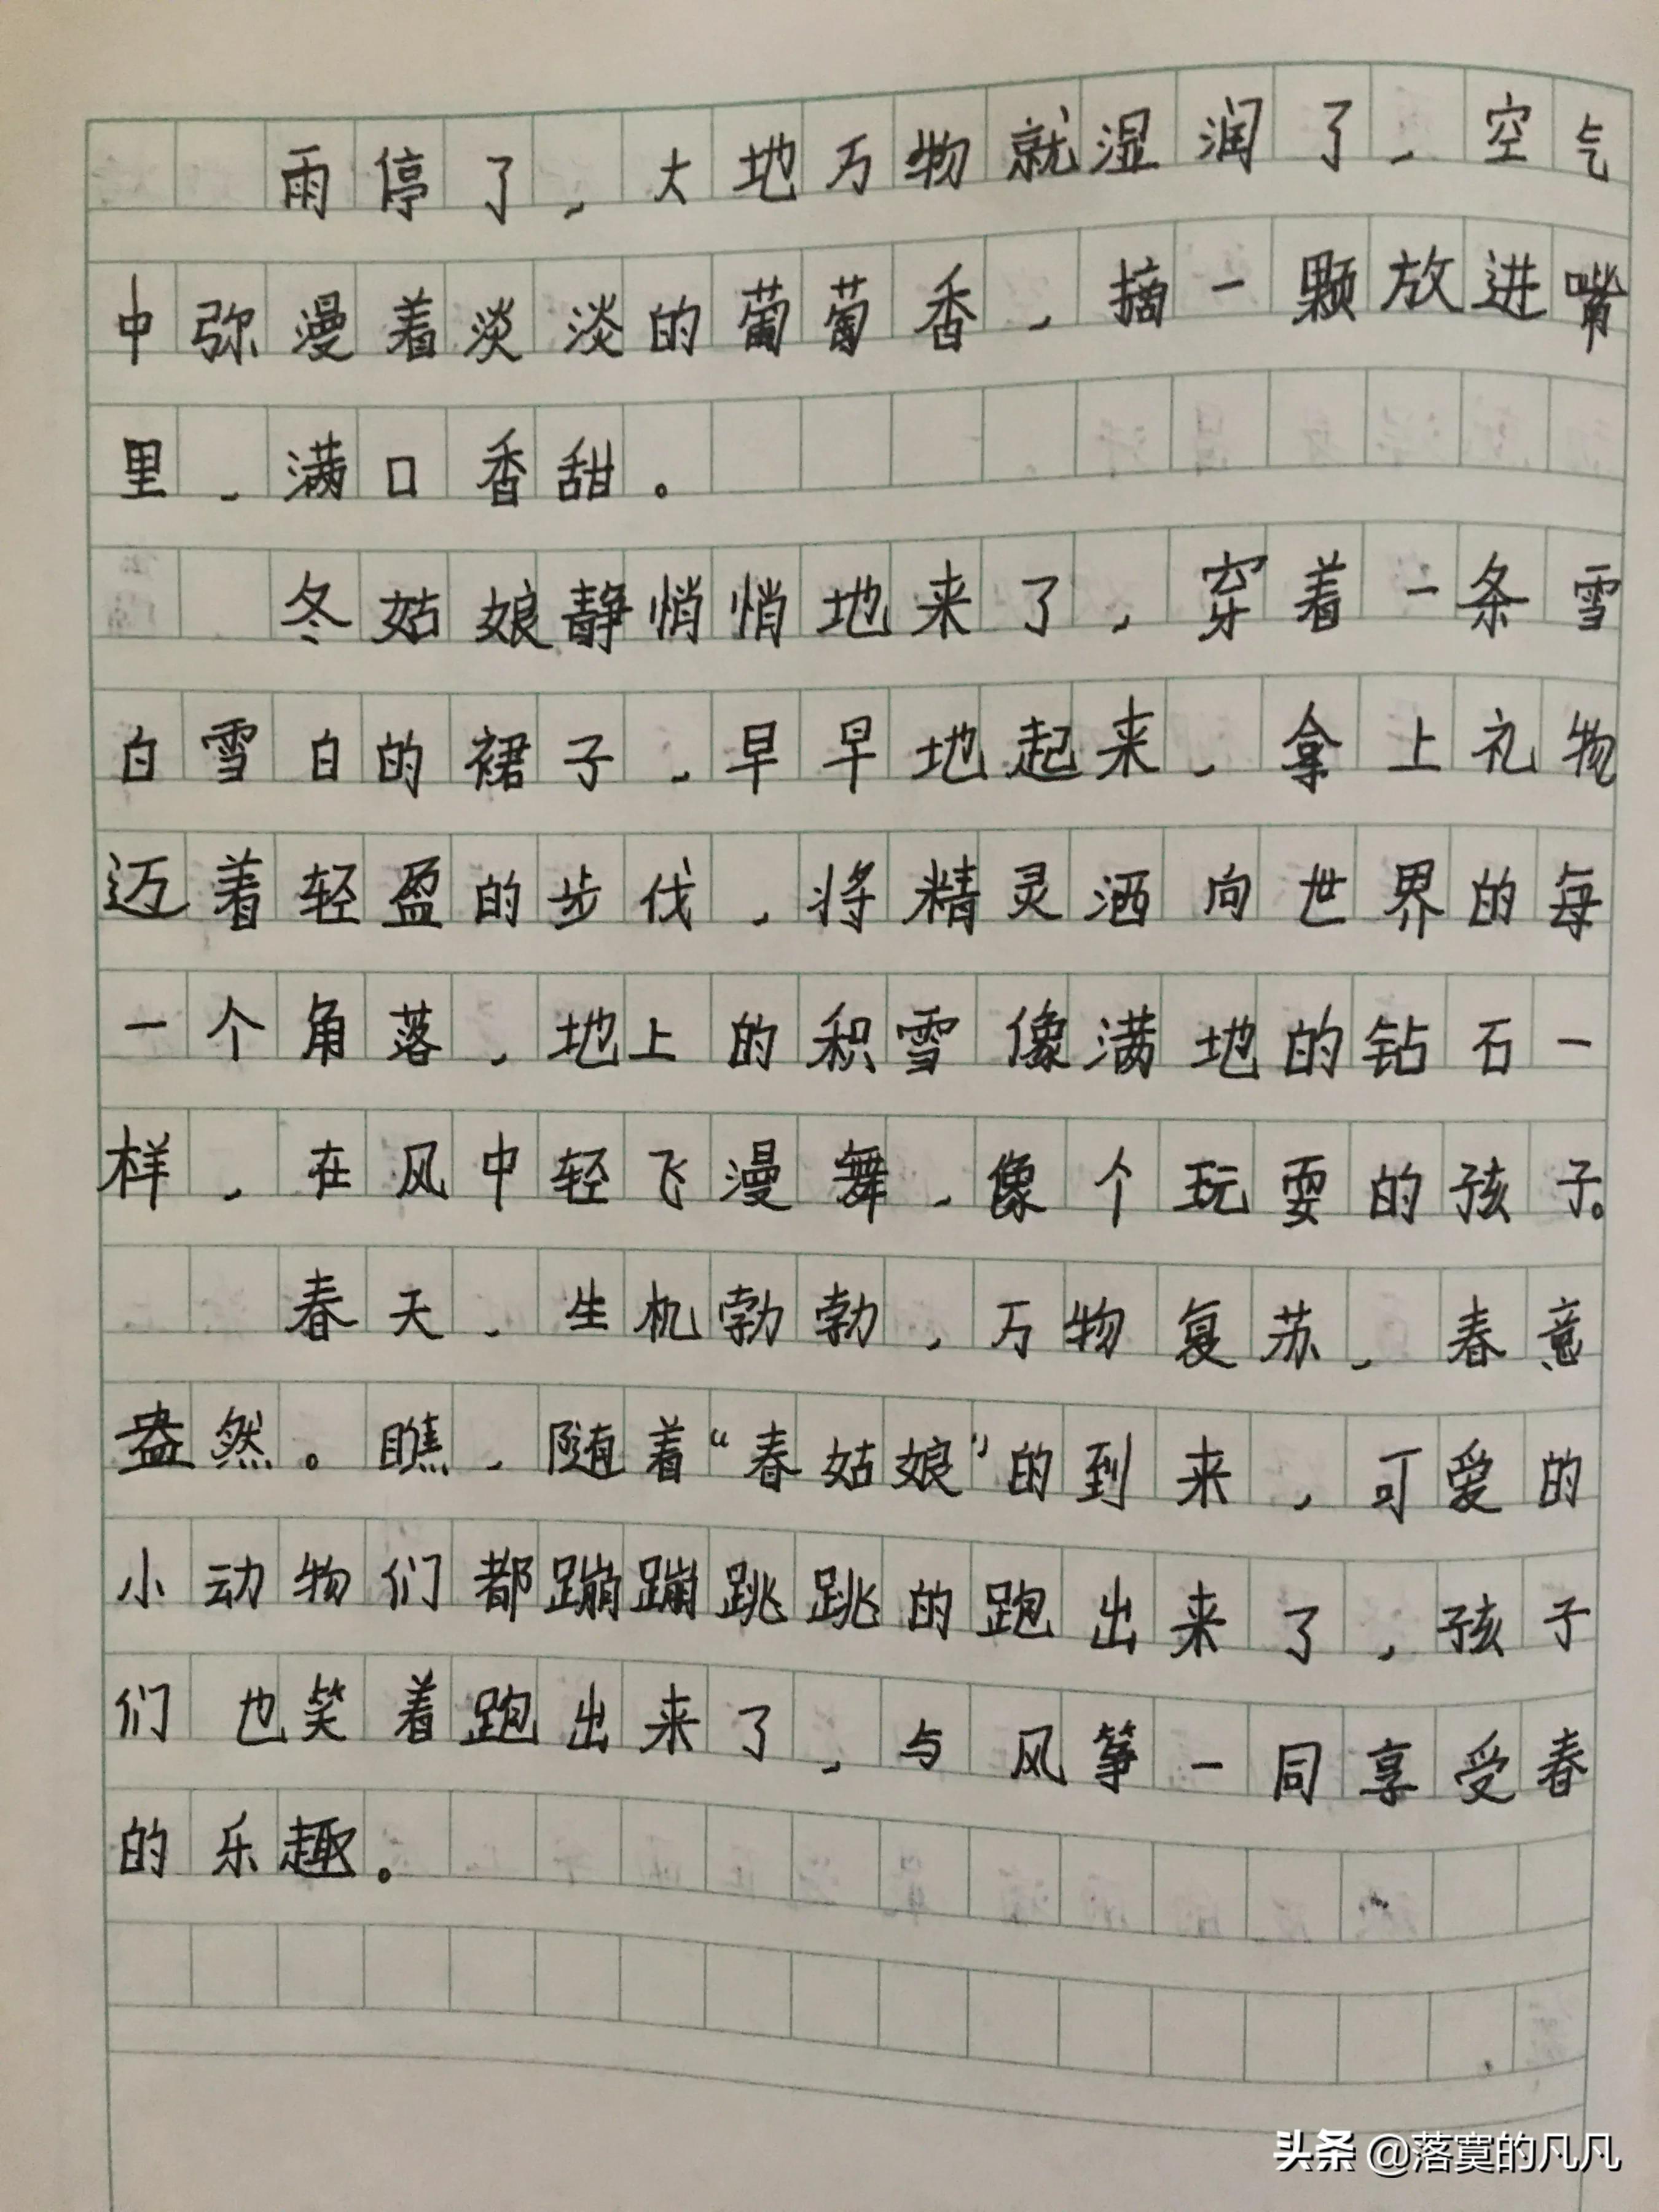 雨停了，大地万物就湿润了，空气
中弥漫着淡淡的葡萄香，摘一颗放进嘴
里，满口香甜。
冬姑娘静悄悄地来了，穿着一条雪
白雪白的裙子，早早地起来，拿上礼物
迈着轻盈的步伐，将精灵洒向世界的每
一个角落，地上的积雪像满地的钻石一
样，在风中轻飞漫舞，像个玩耍的孩子。
春天，生机勃勃，万物复苏，春意
盎然。瞧，随着“春姑娘”的到来，可爱的
小动物们都蹦蹦跳跳的跑出来了，孩子
们也笑着跑出来了，与风筝一同享受春
的乐趣。
头条 @落寞的凡凡